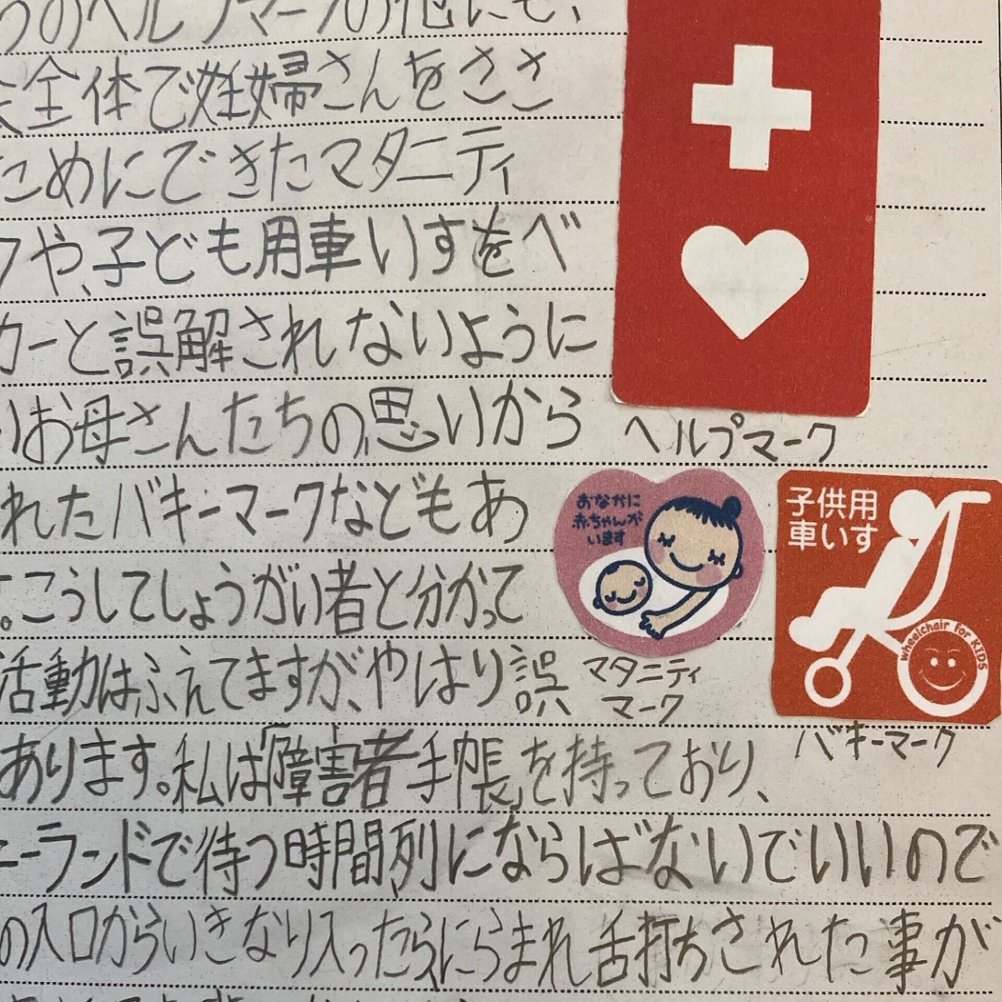 うのヘルプマークの他にも、
全体で妊婦さんをささ
ためにできたマタニティ
クや、子ども用車いすをべ
カーと誤解されないように
お母さんたちの思いから
れたバギーマークなどもあ
。こうしてしょうがい者と分かって
活動はふえてますが、やはり誤
あります。私は「障害者手帳」を持っており、
ニーランドで待つ時間列にならばないでいいので
の入口からいきなり入ったらにらまれ舌打ちされた事が
ヘルプマーク
おなかに
赤ちゃんが
います
マタニティ
マーク
子供用
車いす
wheelchair for KIDS
バギーマーク